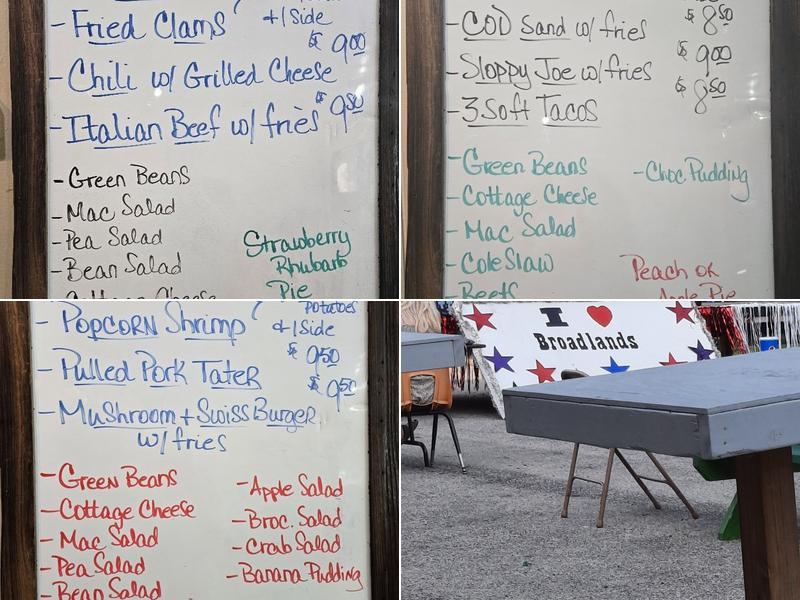 - Fried Clams
+1 Side
$ 9.00
- Chili w/ Grilled Cheese
$ 9.50
- Italian Beef w/ fries
- Green Beans
- Mac Salad
- Pea Salad
- Bean Salad
Cottage Cheese
Strawberry
Rhubarb
Pie
$ 8.50
- COD Sand w/ fries
$ 9.00
- Sloppy Joe w/ fries
$ 8.50
- 3 Soft Tacos
- Green Beans
- Cottage Cheese
- Mac Salad
- Cole Slaw
Beets
- Choc Pudding
Peach or
Apple Pie
Potatoes
- Popcorn Shrimp
+1 Side
$ 9.50
- Pulled Pork Tater
$ 9.50
- Mushroom + Swiss Burger
w/ fries
- Green Beans
- Cottage Cheese
- Mac Salad
- Pea Salad
- Bean Salad
- Apple Salad
- Broc. Salad
- Crab Salad
- Banana Pudding
I ❤
Broadlands